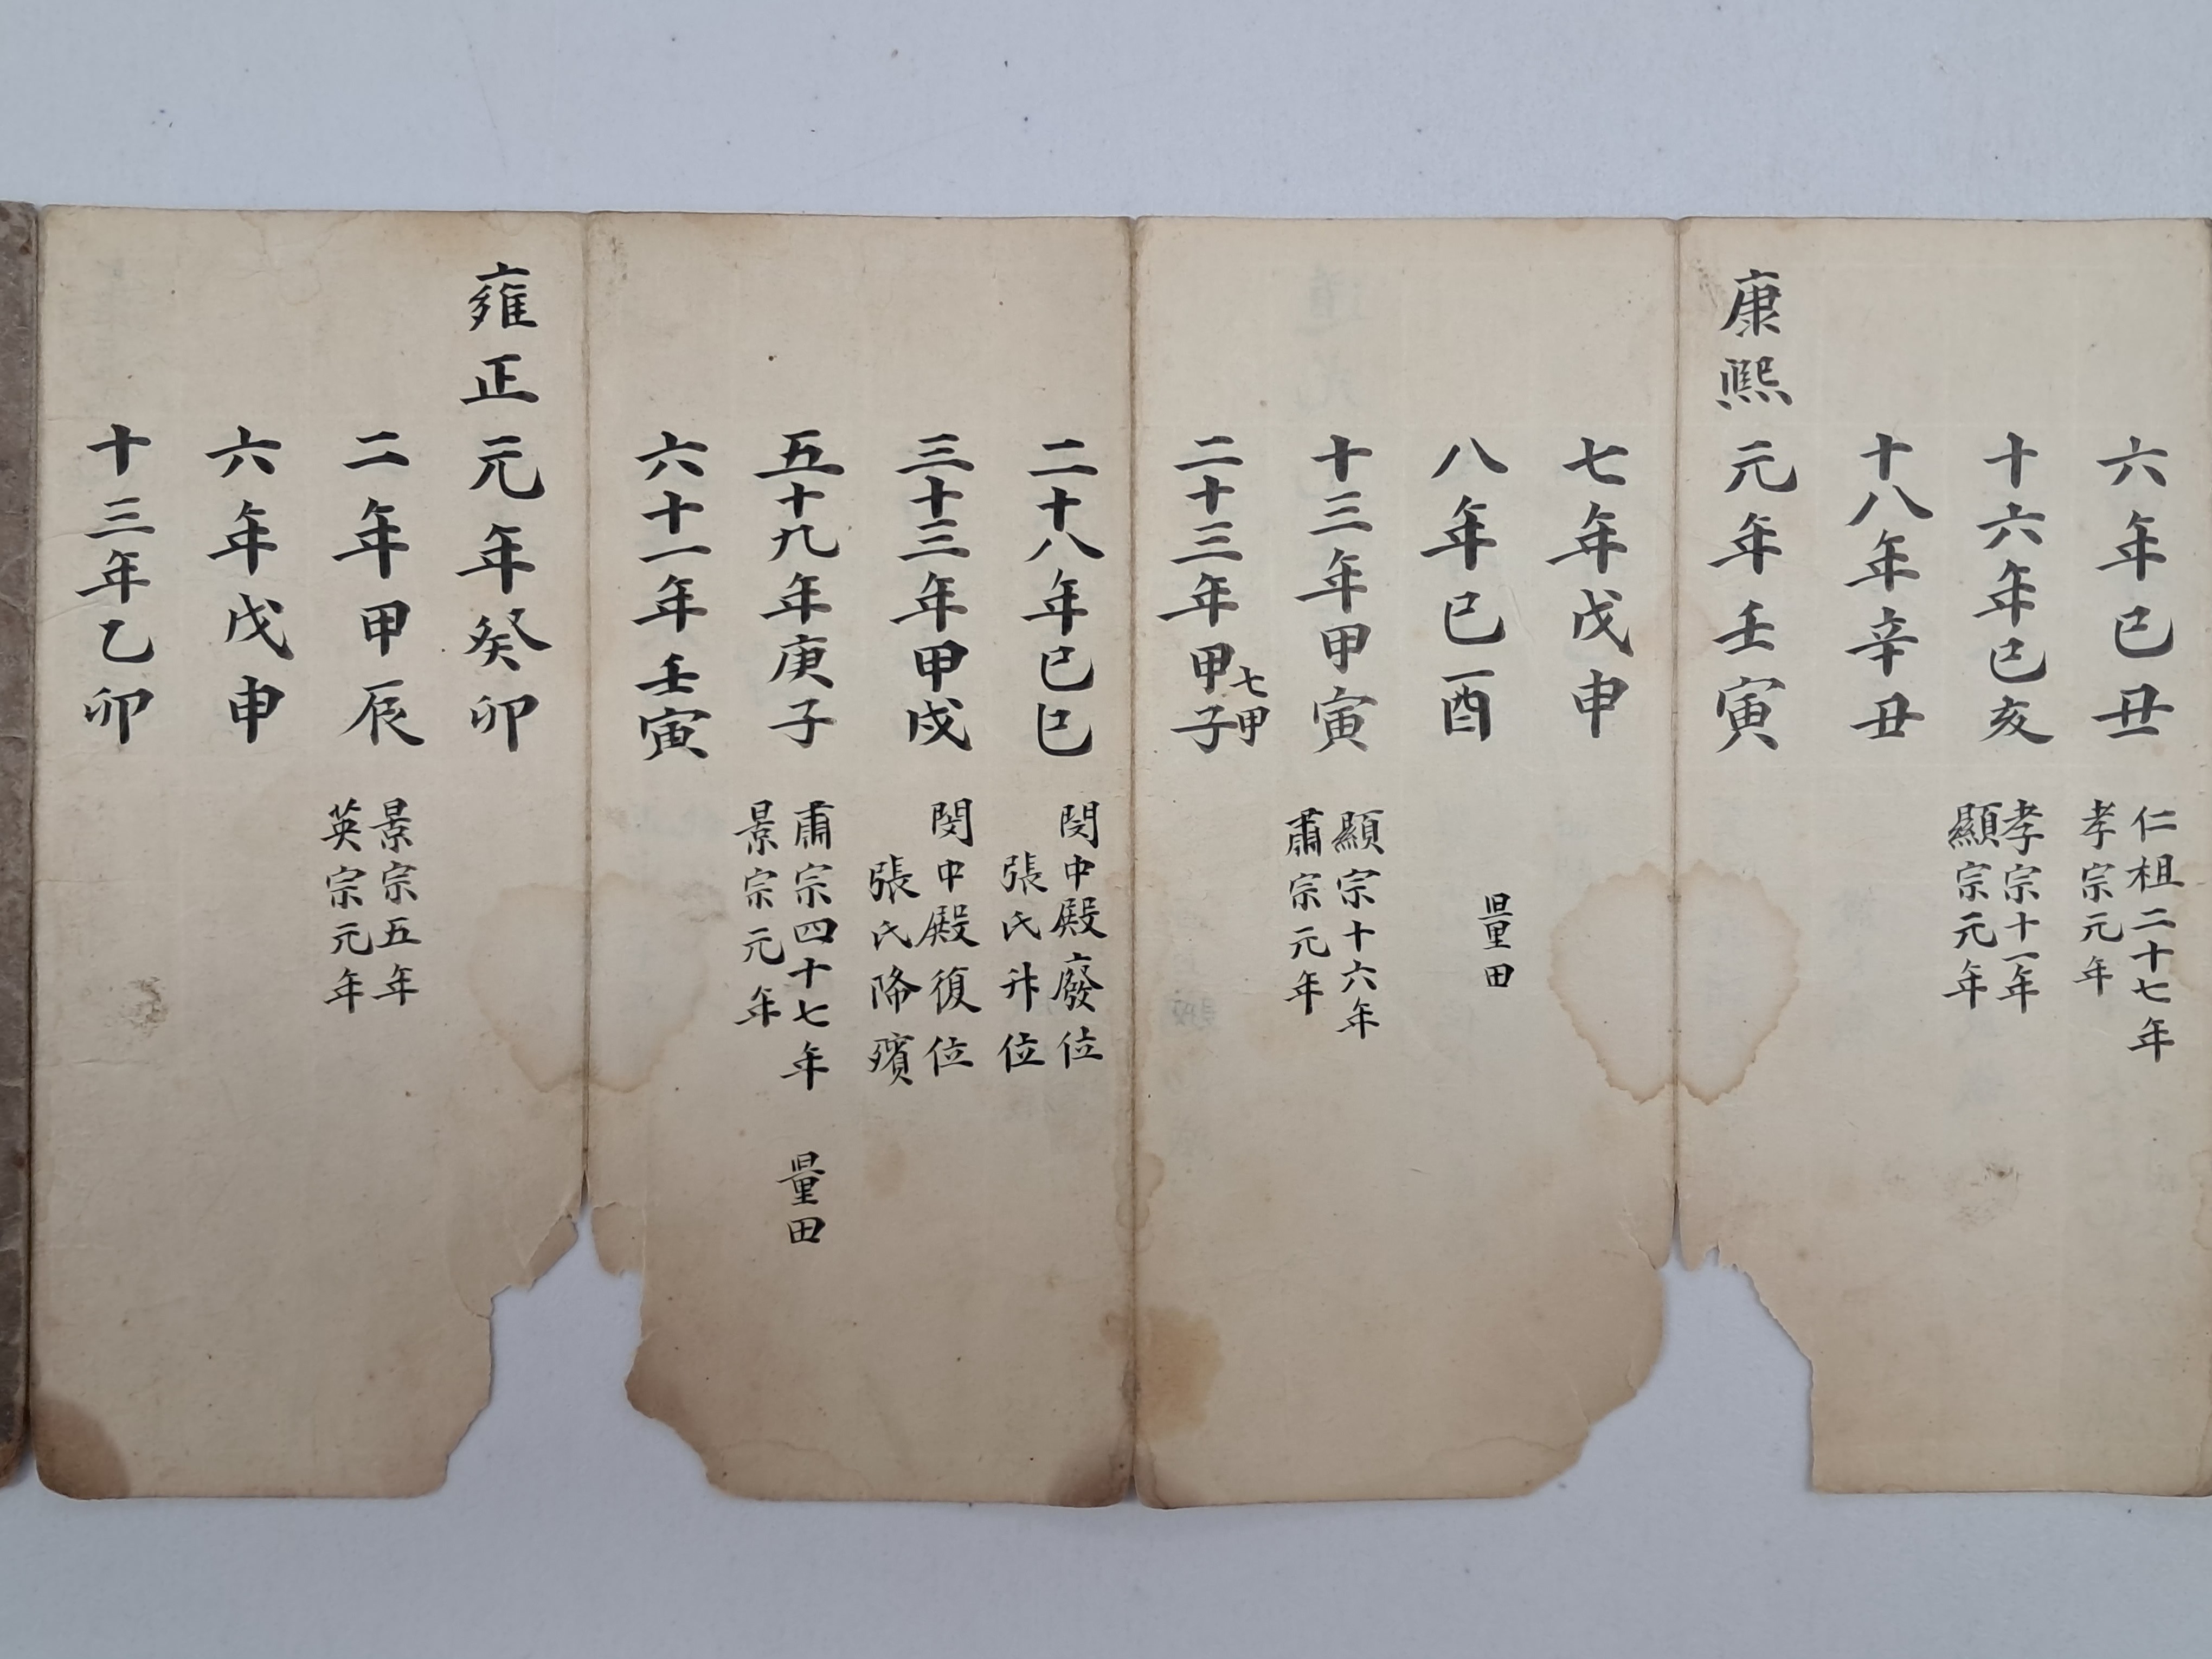 六年己丑
仁祖二十七年
孝宗元年
十六年己亥
孝宗十一年
顯宗元年
十八年辛丑
康熙元年壬寅
七年戊申
八年己酉
量田
十三年甲寅
顯宗十六年
肅宗元年
二十三年甲子
七甲
二十八年己巳
閔中殿廢位
張氏升位
三十三年甲戌
閔中殿復位
張氏降殯
五十九年庚子
肅宗四十七年 量田
景宗元年
六十一年壬寅
雍正元年癸卯
二年甲辰
景宗五年
英宗元年
六年戊申
十三年乙卯